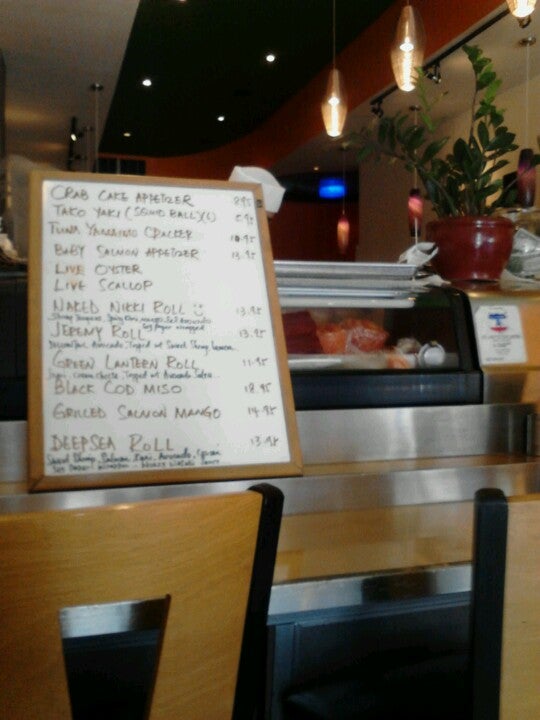 CRAB CAKE APPETIZER 8.95
TAKO YAKI (SQUID BALL)(6) 5.95
TUNA CRACKER 10.95
BABY SALMON APPETIZER 13.95
LIVE OYSTER
LIVE SCALLOP
NAKED NIKKI ROLL 13.95
Shrimp Tempura, Spicy Mango, Avocado
Soy paper wrapped
JEREMY ROLL 13.95
Avocado, Topped w/ Sweet Shrimp,
GREEN LANTERN ROLL 11.95
Cream cheese, Topped w/ Avocado
BLACK COD MISO 18.95
GRILLED SALMON MANGO 14.95
DEEPSEA ROLL 13.95
Shrimp, Salmon, Avocado,